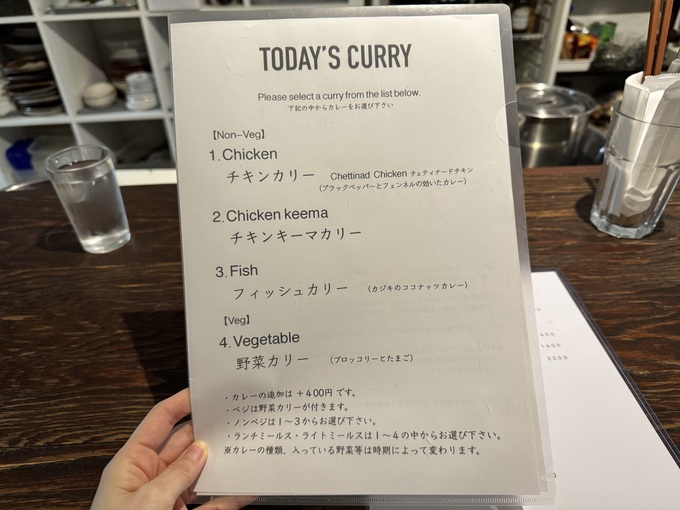 TODAY'S CURRY
Please select a curry from the list below.
下記の中からカレーをお選び下さい
【Non-Veg】
1. Chicken
チキンカリー Chettinad Chicken チェティナードチキン
（ブラックペッパーとフェンネルの効いたカレー）
2. Chicken keema
チキンキーマカリー
3. Fish
フィッシュカリー （カジキのココナッツカレー）
【Veg】
4. Vegetable
野菜カリー （ブロッコリーとたまご）
・カレーの追加は +400円 です。
・ベジは野菜カリーが付きます。
・ノンベジは1～3からお選び下さい。
・ランチミールス・ライトミールスは1～4の中からお選び下さい。
※カレーの種類、入っている野菜等は時期によって変わります。